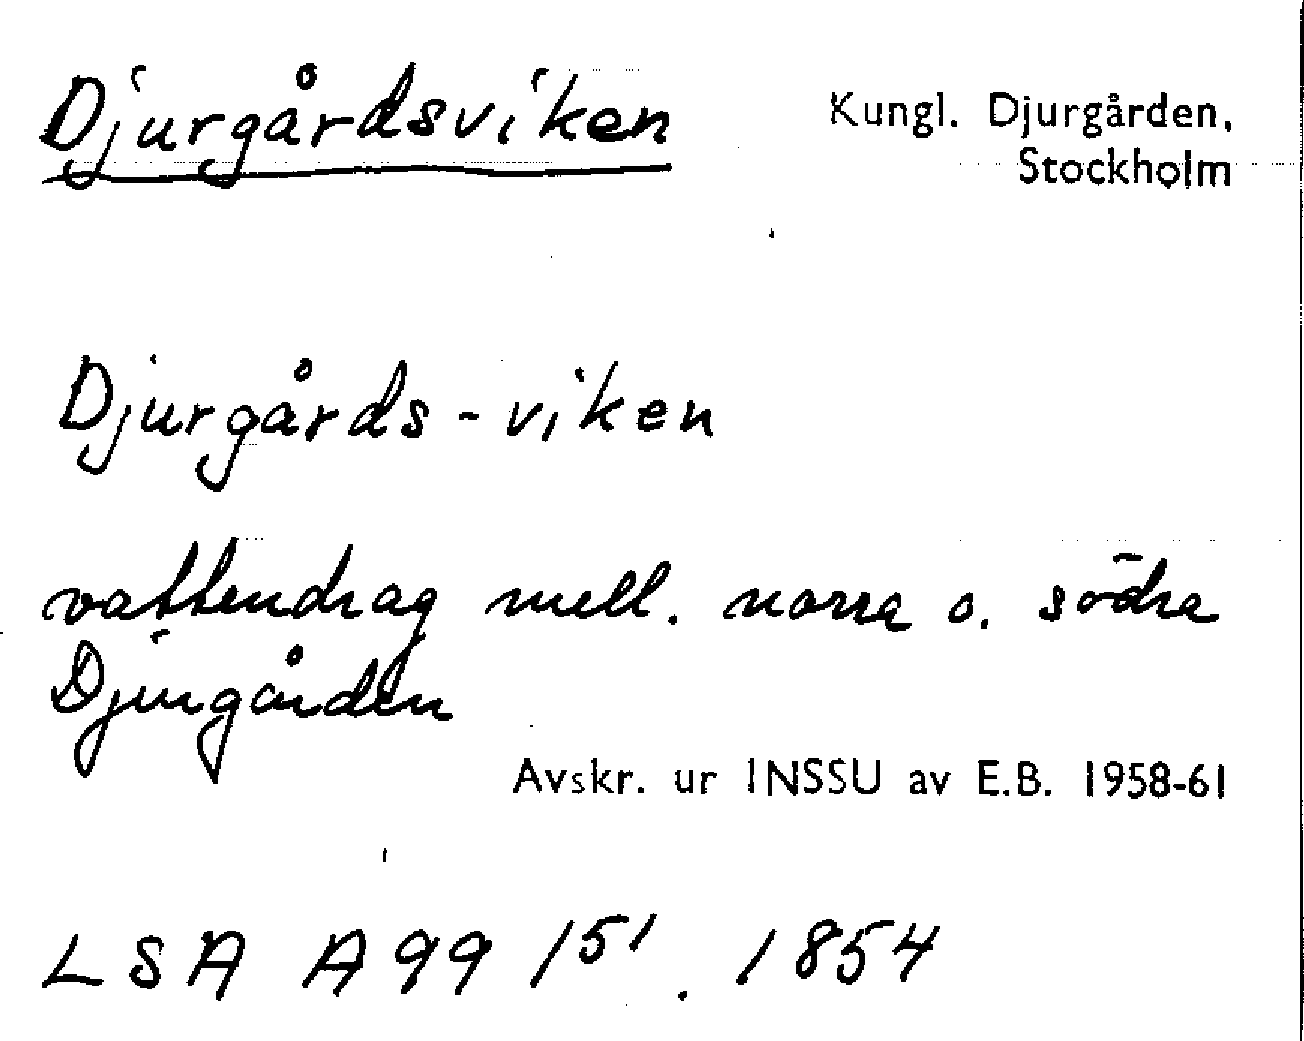 Djurgårdsviken
Kungl. Djurgården,
Stockholm
Djurgårds-viken
vattendrag mell. norra o. södra
Djurgården
Avskr. ur INSSU av E.B. 1958-61
LSA A99 151. 1854